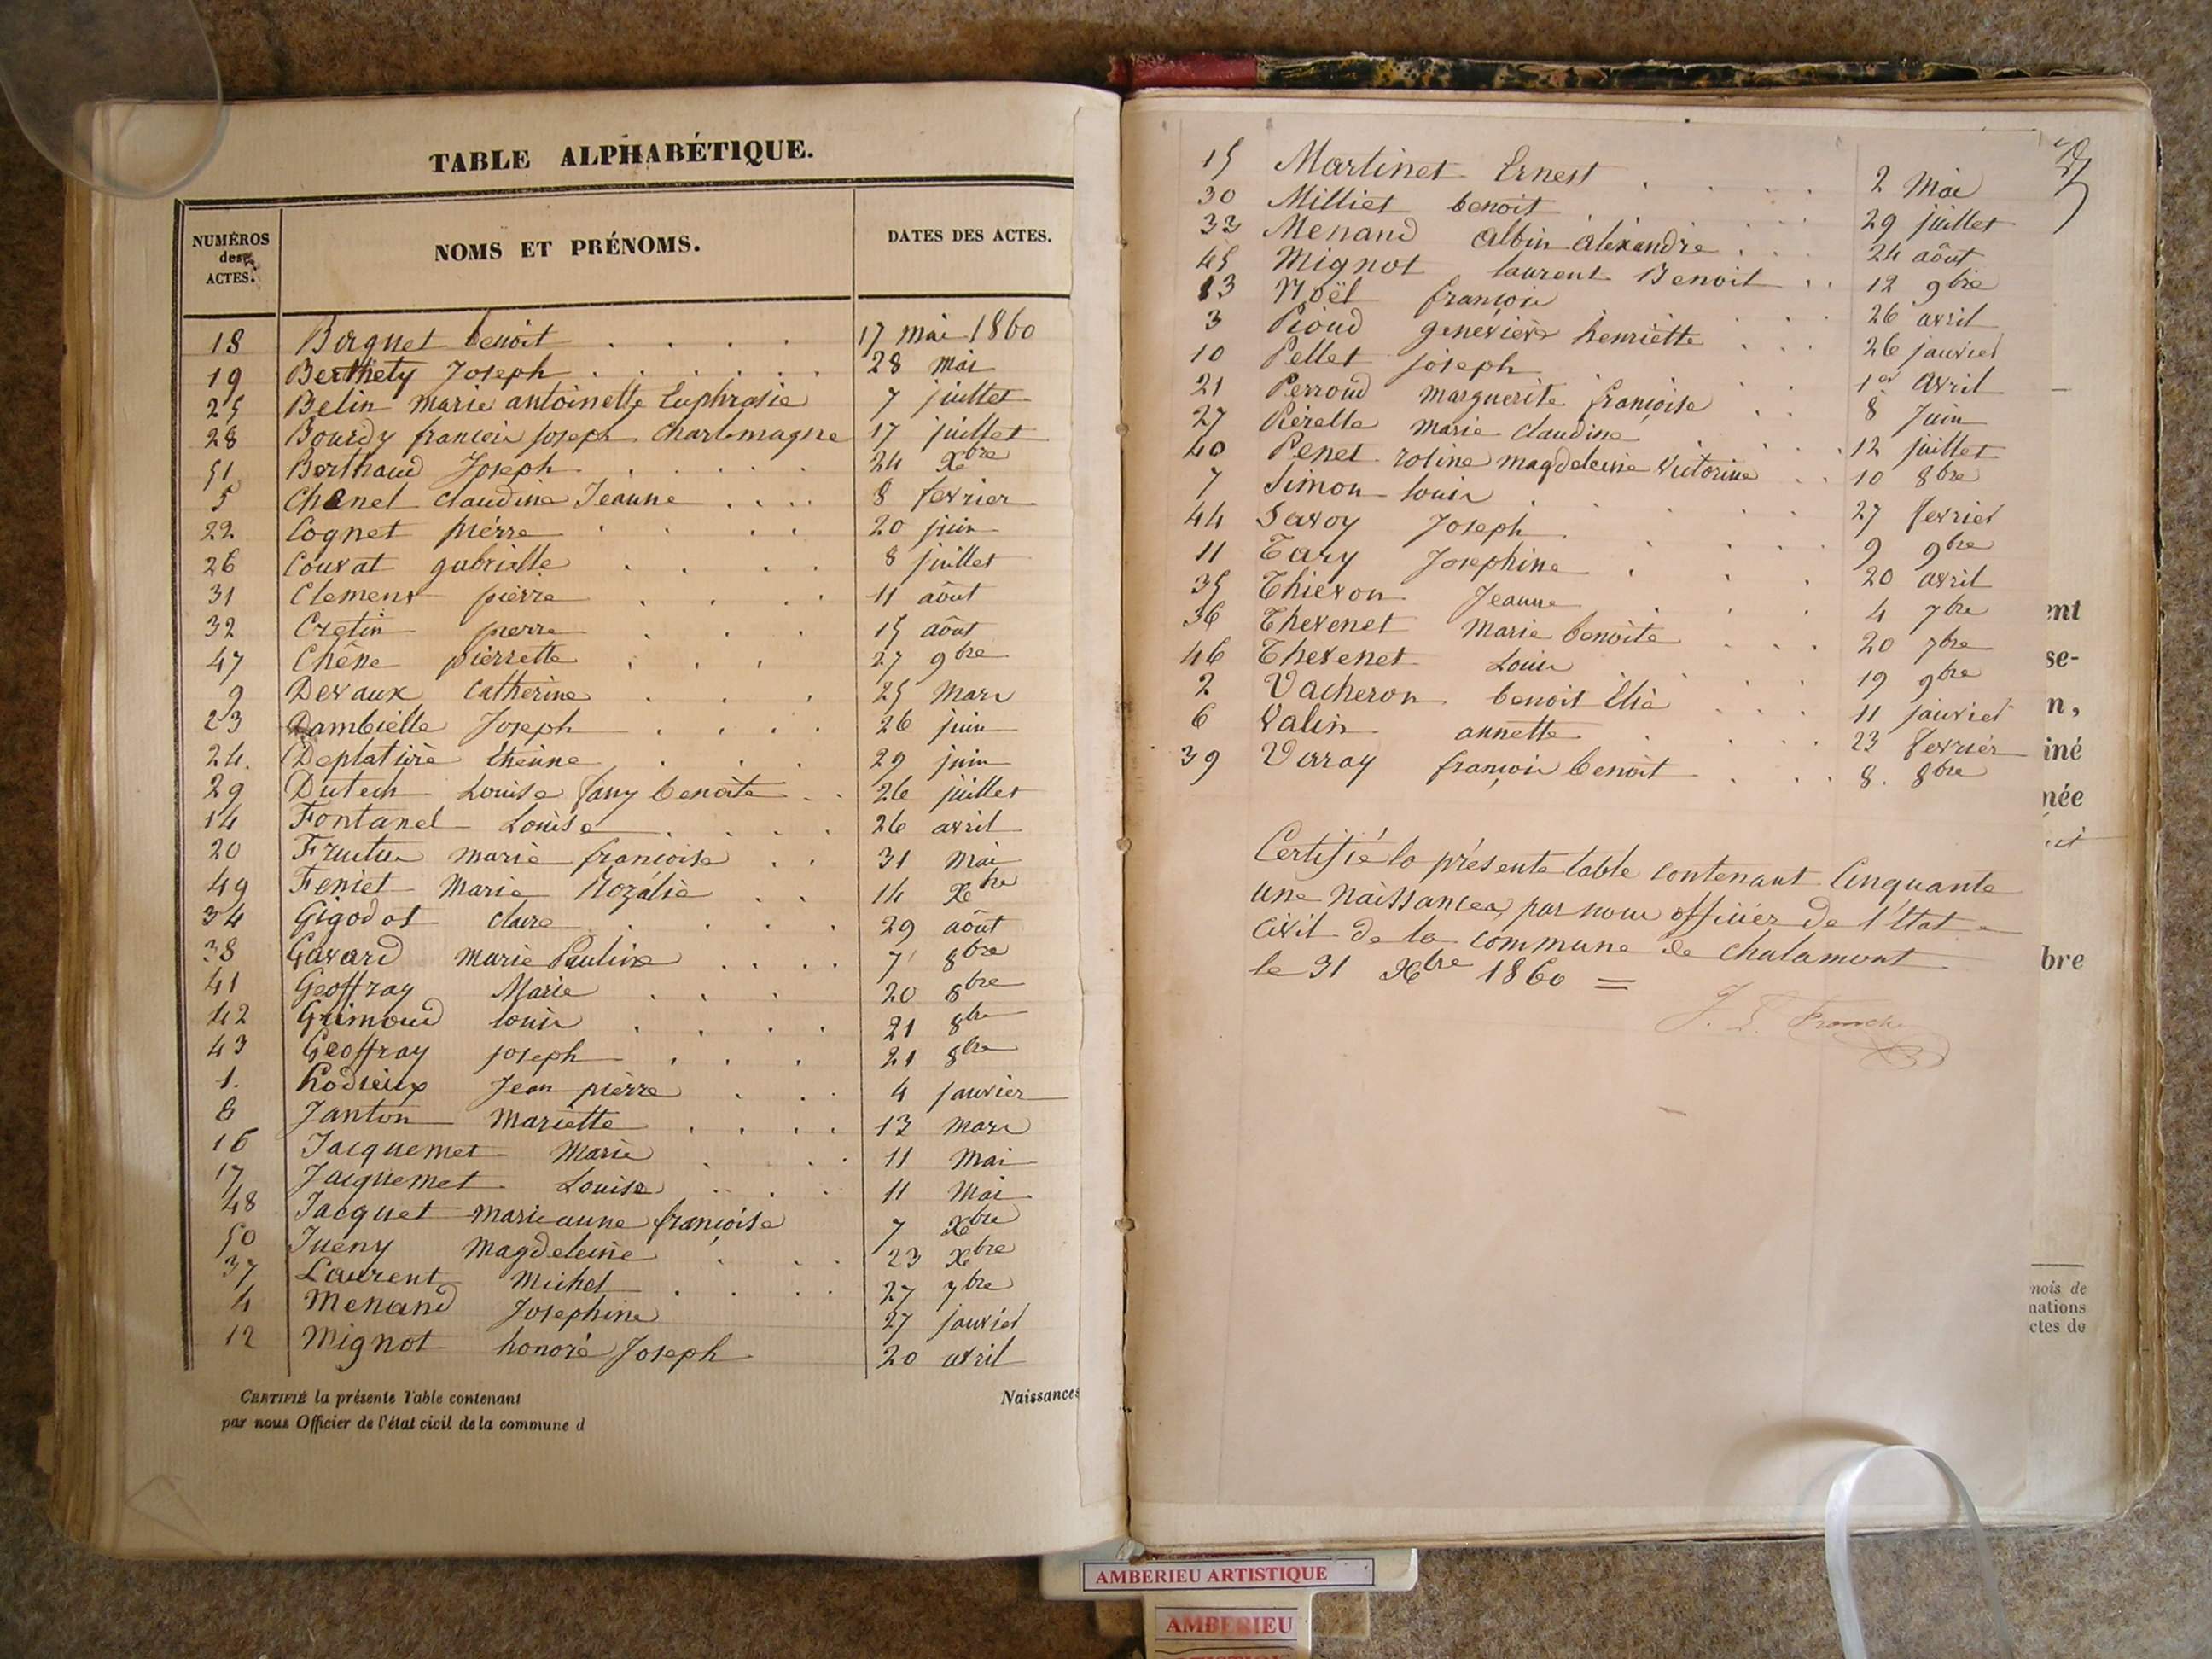 TABLE ALPHABÉTIQUE.
NUMÉROS des ACTES.
NOMS ET PRÉNOMS.
DATES DES ACTES.
18 Berguet benoit 17 mai 1860
19 Berthety Joseph 28 mai
25 Belin marie antoinette Euphrasie 7 juillet
28 Bourdy francois joseph Charlemagne 17 juillet
51 Berthaud Joseph 24 Xbre
5 Chanel Claudine Jeanne 8 fevrier
22 Cognet pierre 20 juin
26 Couvat gabrielle 8 juillet
31 Clement pierre 11 aôut
32 Cretin pierre 15 aôut
47 Chêne pierrette 27 9bre
9 Devaux Catherine 25 Mars
23 Dambielle Joseph 26 juin
24. Deplatière Etienne 29 juin
29 Dutech Louise fany benoite 26 juillet
14 Fontanel Louise 26 avril
20 marie françoise 31 Mai
49 Feniet Marie Rozalie 14 Xbre
34 Gigodot Claire 29 aôut
38 Gavard Marie Pauline 7 8bre
41 Geoffray Marie 20 8bre
42 Grimoud louis 21 8bre
43 Geoffray joseph 21 8bre
1. hodieux Jean pierre 4 janvier
8 Janton Mariette 13 mars
16 Jacquemet Marie 11 Mai
17 Jacquemet Louise 11 Mai
48 Jacquet marie anne françoise 7 Xbre
50 Jueny Magdeleine 23 Xbre
37 Laurent Michel 27 7bre
4 Menand Josephine 27 janvier
12 Mignot honoré Joseph 20 avril
CERTIFIÉ la présente Table contenant Naissances
par nous Officier de l'état civil de la commune d
15 Martinet Ernest 2 Mai
30 Milliet benoit 29 juillet
33 Menand Albin alexandre 24 aôut
45 Mignot laurent Benoit 12 9bre
13 Noël françois 26 avril
3 Pioud genevieve henriette 26 janvier
10 Pellet joseph 1er Avril
21 Perroud Marguerite françoise 8 Juin
27 Pérelle Marie Claudine 12 juillet
40 Penet rosine magdeleine Victorine 10 8bre
7 Simon louis 27 fevrier
44 Savoy Joseph 9 9bre
11 Tary Josephine 20 avril
35 Thievon Jeanne 4 7bre
36 Thevenet Marie benoite 20 7bre
46 Thevenet Louis 19 9bre
2 Vacheron benoit Elie 11 janvier
6 Valin annette 23 fevrier
39 Verray françois benoit 8. 8bre
Certifié la présente table contenant Cinquante
une Naissances, par nous officier de l'Etat
Civil de la commune de Chalamont
le 31 Xbre 1860 =
J. L. Franche
ent
se-
n,
iné
née
bre
mois de
nations
ctes de
AMBERIEU ARTISTIQUE
AMBERIEU